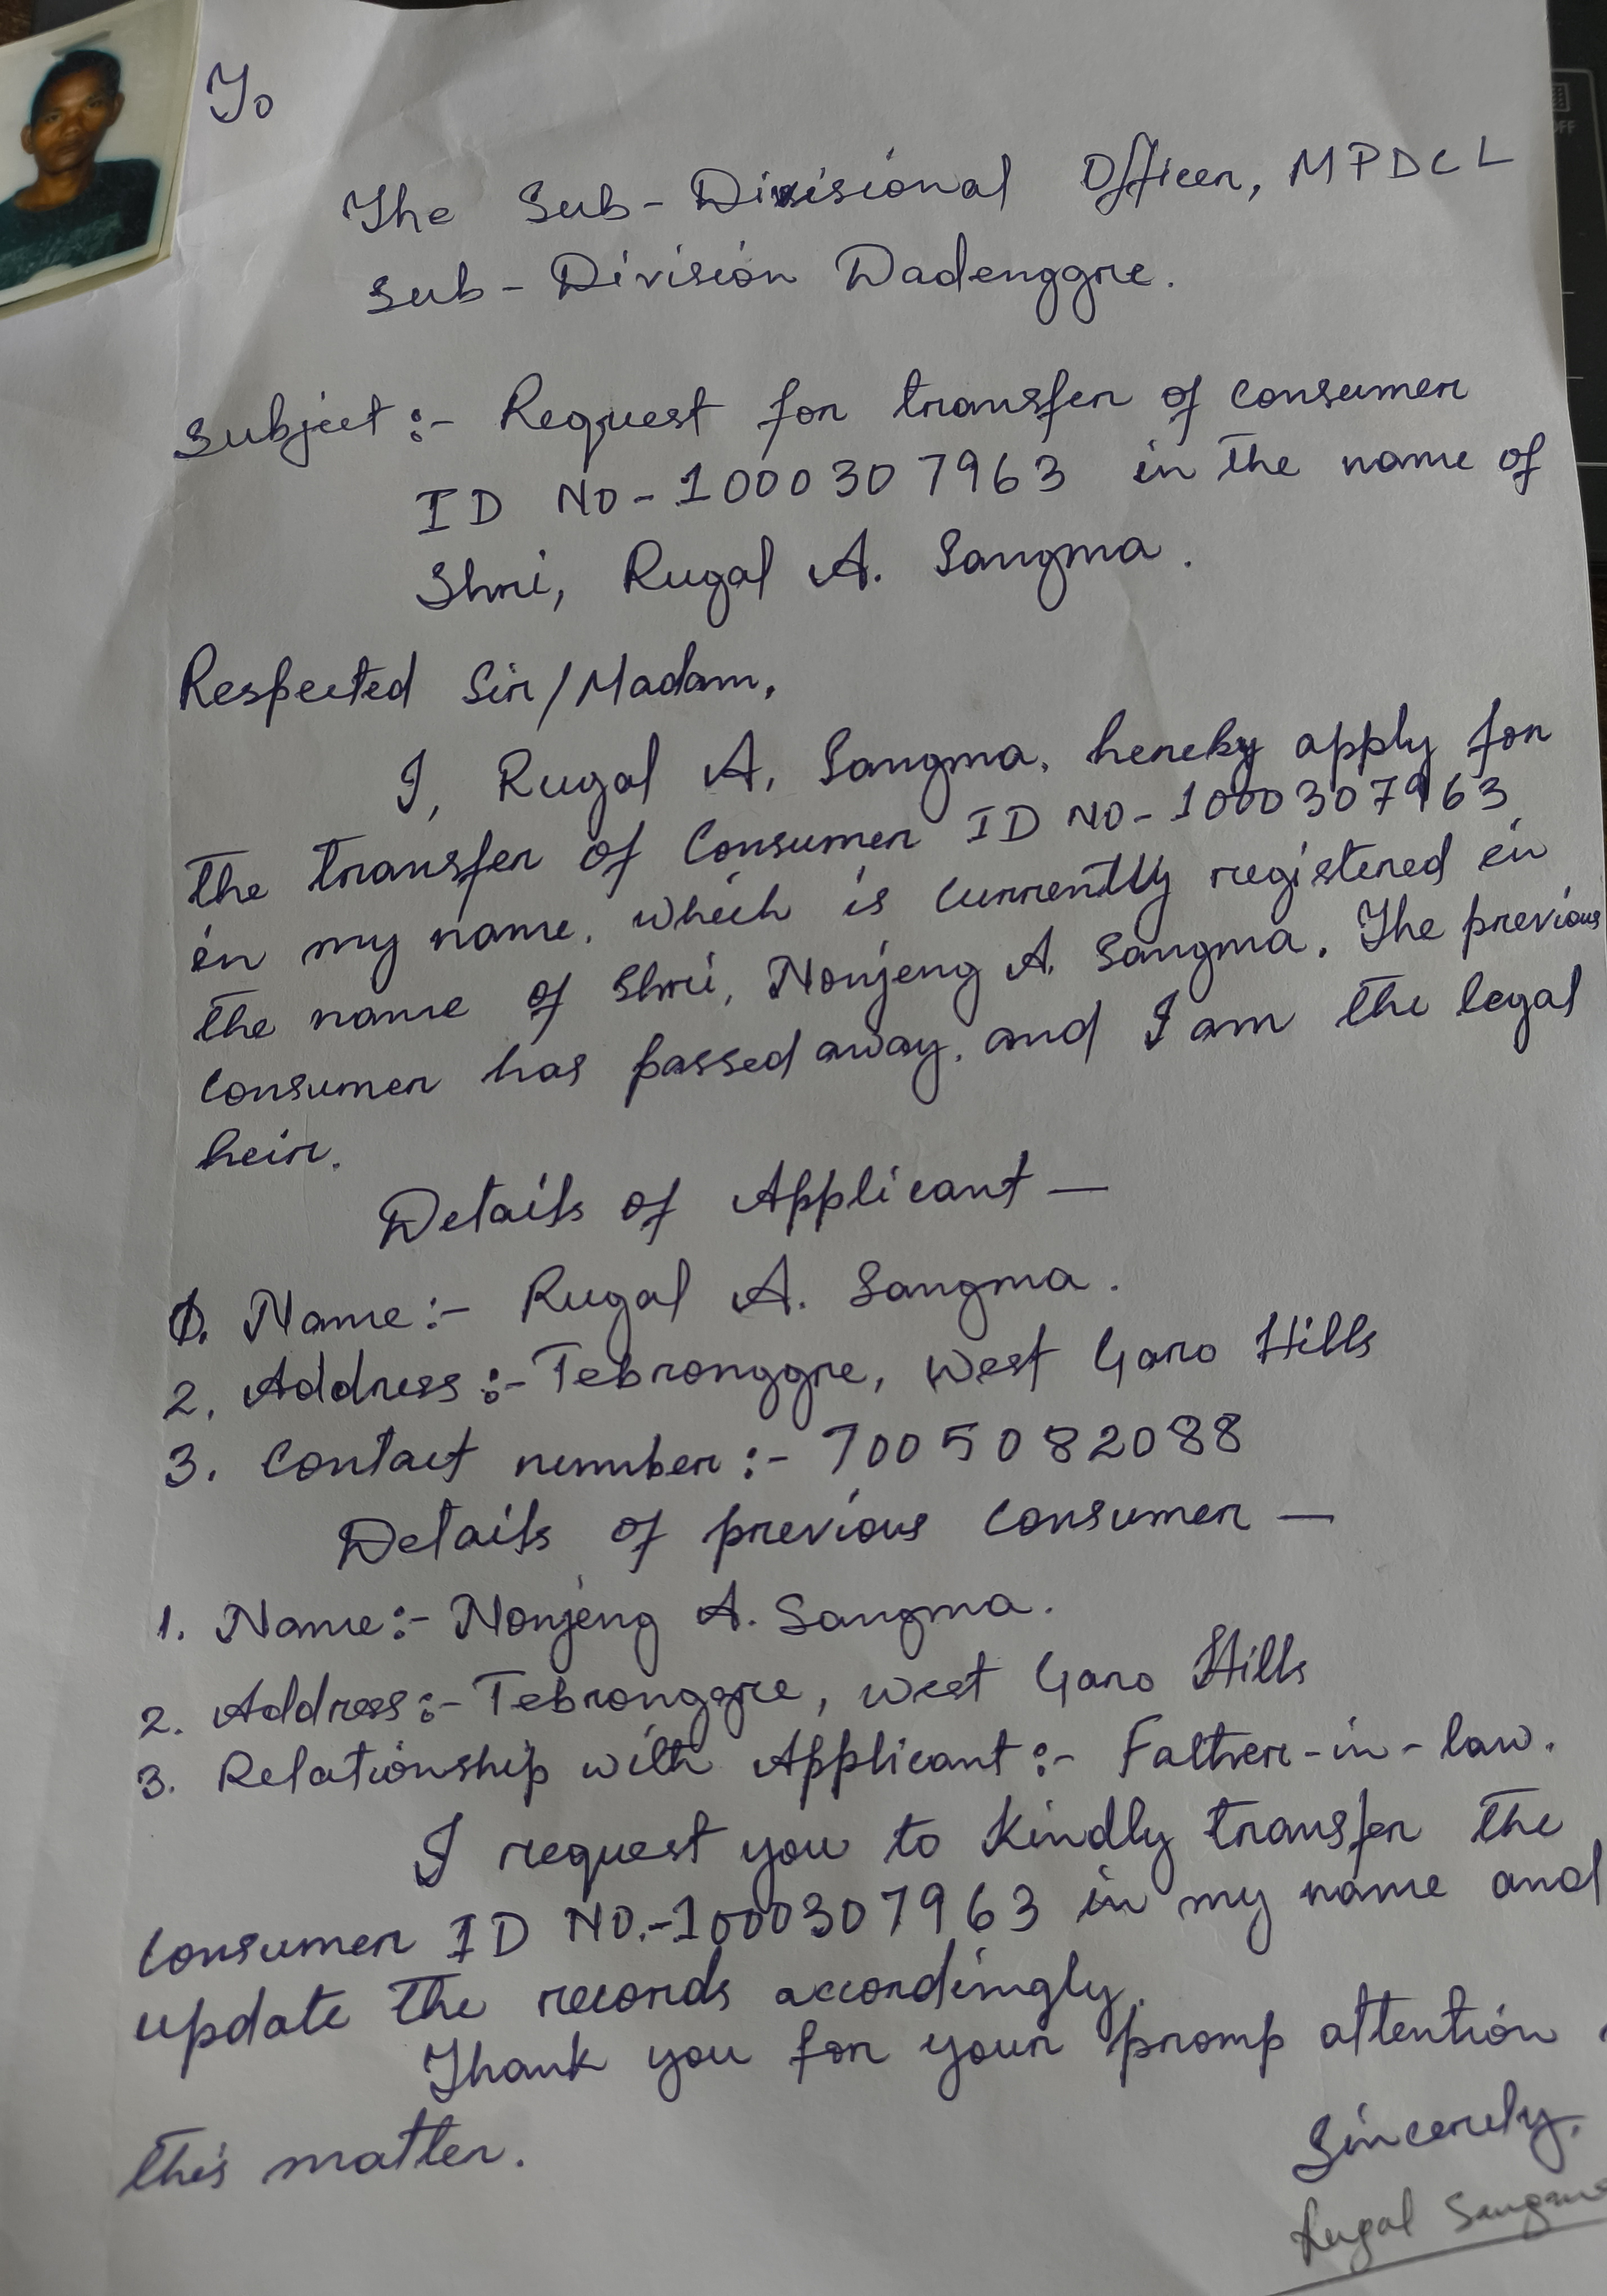 To
The Sub-Divisional Officer, MPDCL
Sub-Division Dadenggre.
Subject:- Request for transfer of consumer
ID NO-1000307963 in the name of
Shri, Rugal A. Sangma.
Respected Sir/Madam,
I, Rugal A. Sangma, hereby apply for
the transfer of Consumer ID NO-1000307963
in my name, which is currently registered in
the name of Shri, Nonjeng A. Sangma. The previous
consumer has passed away, and I am the legal
heir.
Details of Applicant —
1. Name:- Rugal A. Sangma.
2. Address:- Tebronggre, West Garo Hills
3. Contact number:- 7005082088
Details of previous consumer —
1. Name:- Nonjeng A. Sangma.
2. Address:- Tebronggre, West Garo Hills
3. Relationship with Applicant:- Father-in-law.
I request you to kindly transfer the
consumer ID NO.-1000307963 in my name and
update the records accordingly.
Thank you for your promp attention
this matter.
Sincerely,
Rugal Sangma
OFF